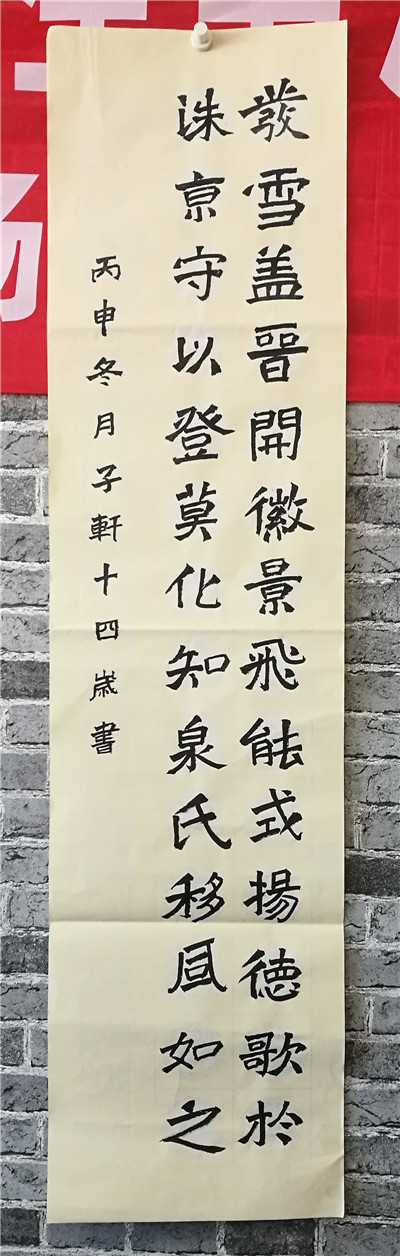 發雪盖晉開徽景飛能式揚德歌於
洙京守以登莫化知泉氏移风如之
丙申冬月子軒十四歲書
场